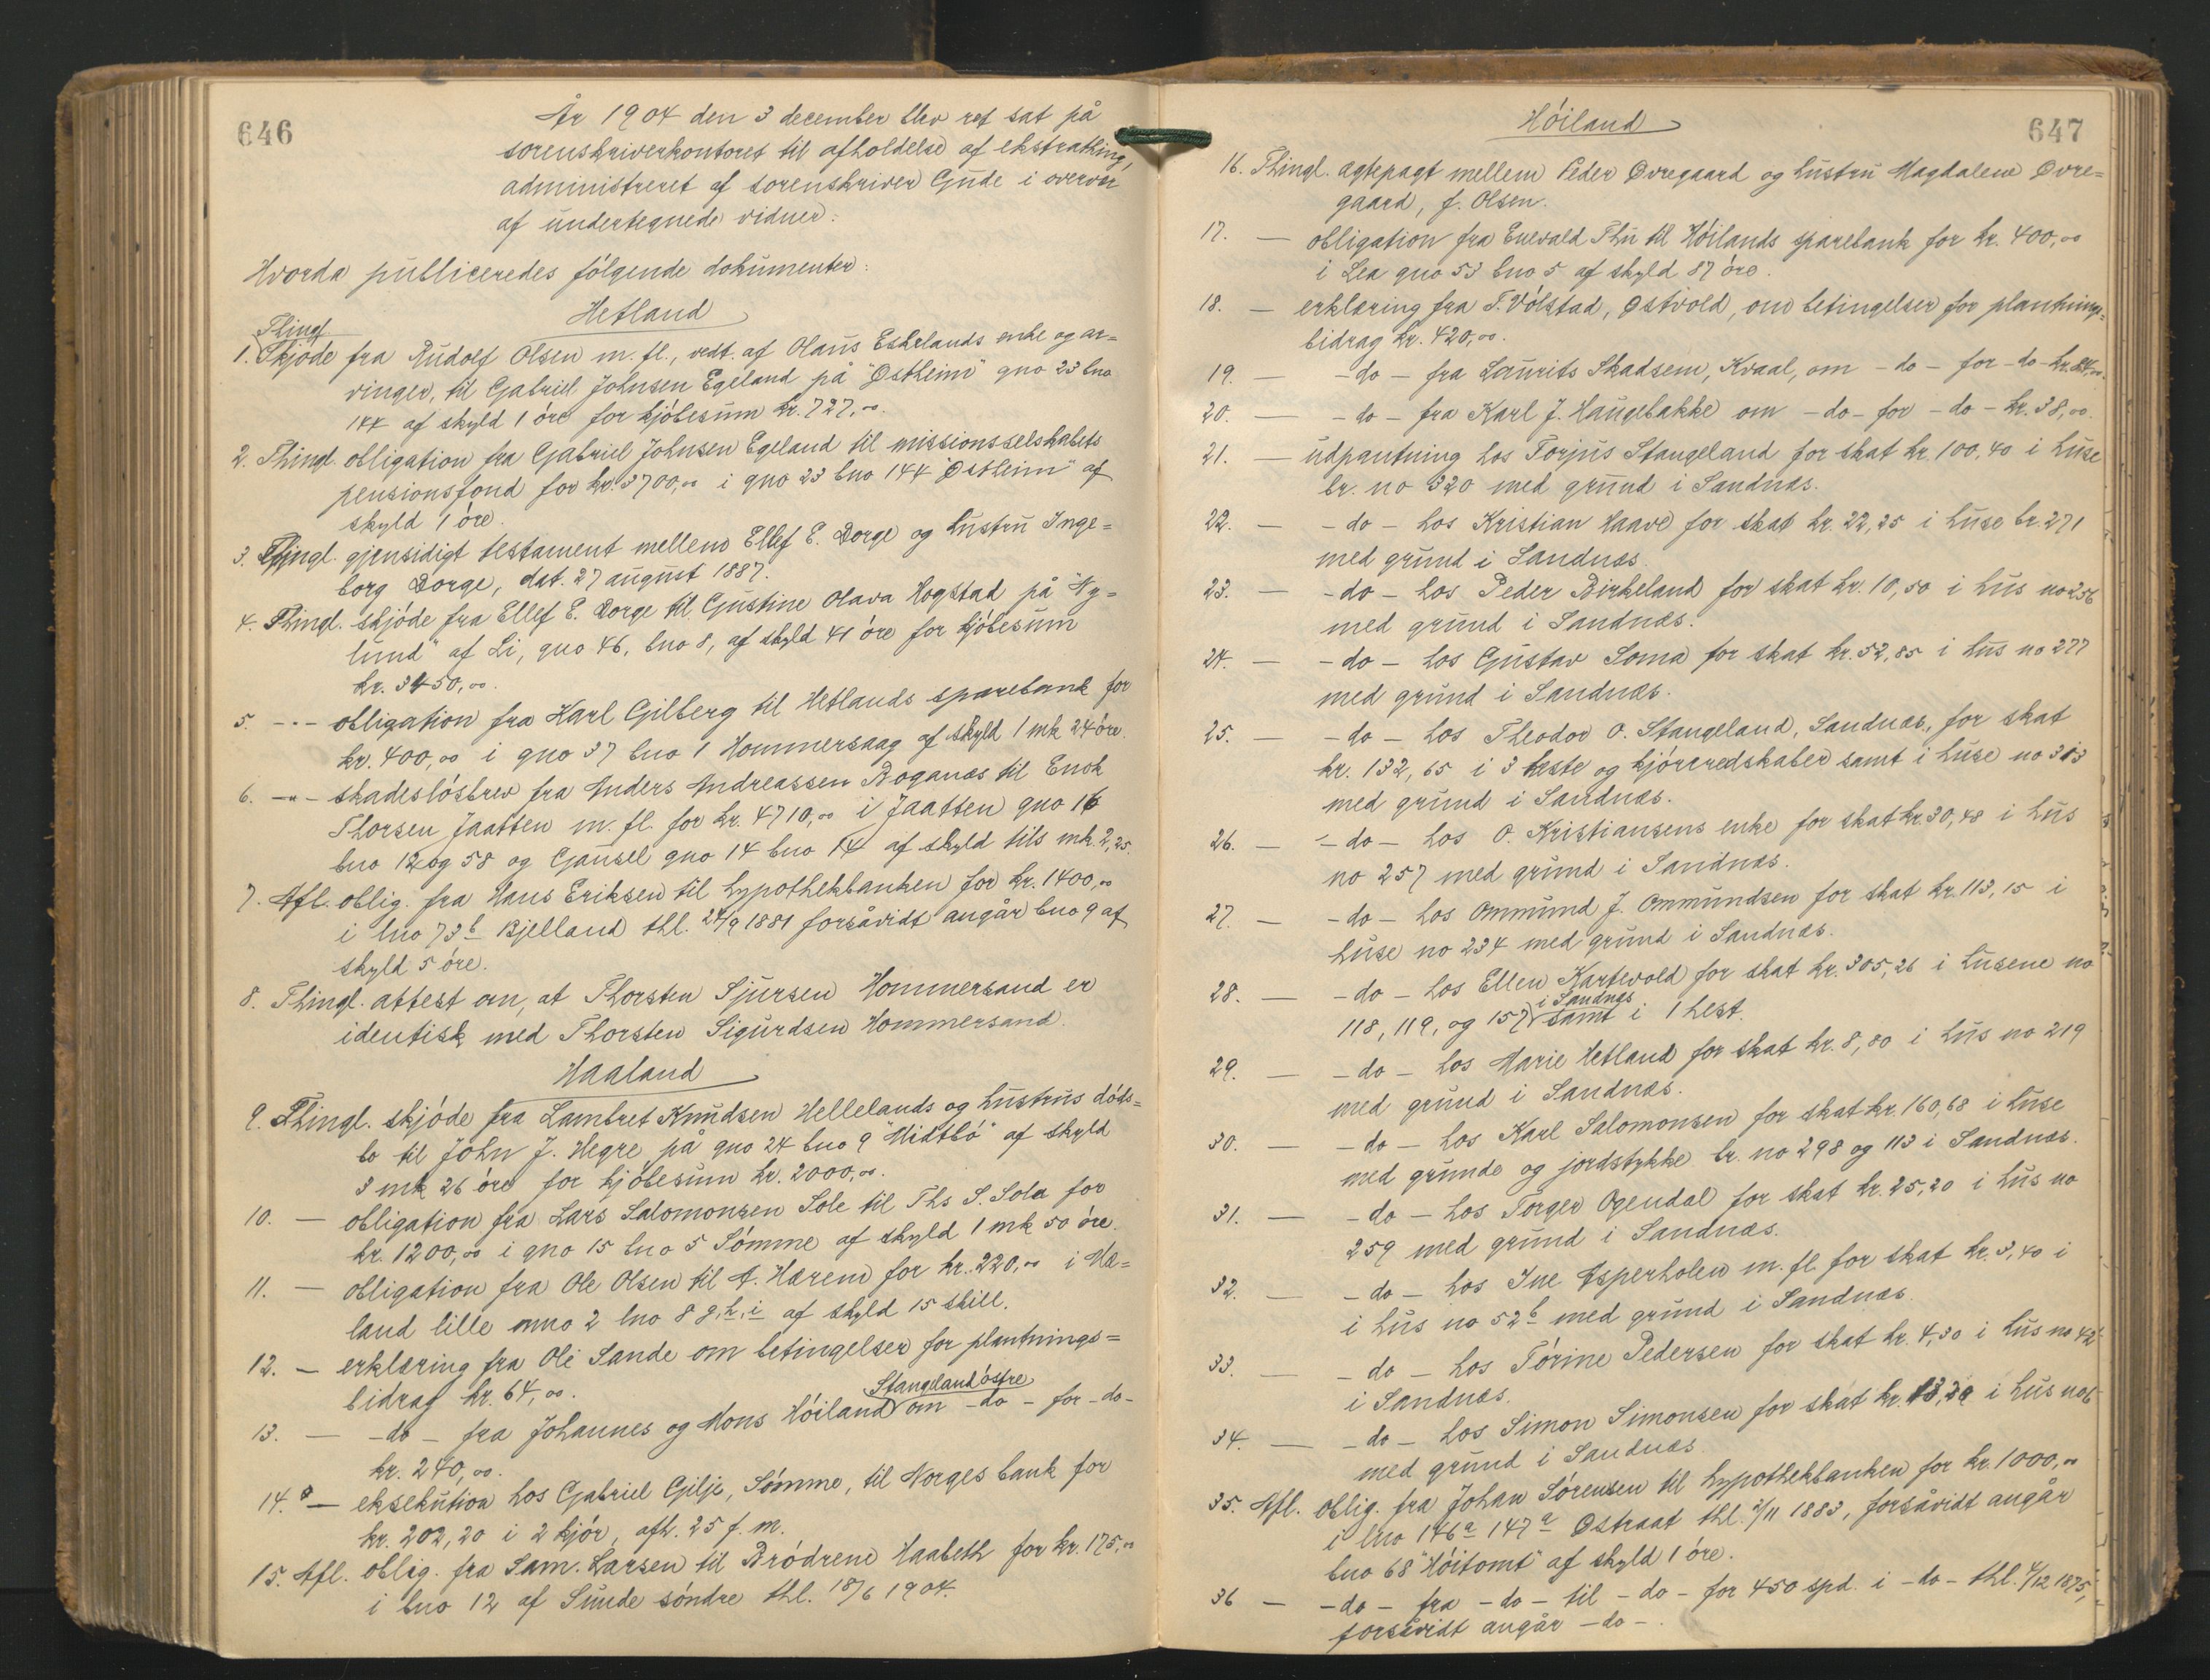 646
År 1904 den 3 december blev ret sat på
sorenskriverkontoret til afholdelse af ekstrathing,
administreret af sorenskriver Gude i overvær
af undertegnede vidner:
Hvorda publiceredes følgende dokumenter:
Hetland
Thingl
1. Skjøde fra Rudolf Olsen m. fl., vedt. af Olaus Eskelands enke og ar=
vinger, til Gabriel Johnsen Egeland på "Østheim" gno 23 bno
144 af skyld 1 øre for kjøbesum kr. 727,00.
2. Thingl. obligation fra Gabriel Johnsen Egeland til missionsselskabets
pensionsfond for kr. 3700,00 i gno 23 bno 144 "Østheim" af
skyld 1 øre.
3. Thingl. gjensidigt testament mellem Ellef E. Dorge og hustru Inge=
borg Dorge, dat. 27 august 1887.
4. Thingl. skjøde fra Ellef E. Dorge til Gustine Olava Hogstad på "Ny=
lund" af Li, gno 46, bno 8, af skyld 41 øre for kjøbesum
kr. 3450,00.
5. -"- obligation fra Karl Gilberg til Hetlands sparebank for
kr. 400,00 i gno 37 bno 1 Hommersaag af skyld 1 mk 24 øre.
6. -"- skadesløsbrev fra Anders Andreassen Boganes til Enok
Thorsen Jaatten m. fl. for kr. 4710,00 i Jaatten gno 16
bno 12 og 58 og Gausel gno 14 bno 14 af skyld tils mk. 2,25.
7. Afl. oblig. fra Hans Eriksen til hypothekbanken for kr. 1400,00
i lno 73b Kjelland thl. 24/9 1881 forsåvidt angår bno 9 af
skyld 5 øre.
8. Thingl. attest om, at Thorsten Sjursen Hommersand er
identisk med Thorsten Sigurdsen Hommersand.
Haaland
9. Thingl. skjøde fra Lambret Knudsen Hellelands og hustrus døds=
bo til John J. Hegre på gno 24 bno 9 "Midtbø" af skyld
3 mk 26 øre for kjøbesum kr. 2000,00.
10. — obligation fra Lars Salomonsen Sole til Ths S. Sola for
kr. 1200,00 i gno 15 bno 5 Sømme af skyld 1 mk 50 øre.
11. — obligation fra Ole Olsen til A. Hærem for kr. 220,00 i Hæ=
land lille mno 2 lno 8 g, h, i af skyld 15 skill.
12. — erklæring fra Ole Sande om betingelser for plantnings=
bidrag kr. 64,00.
Stangeland østre
13. — -do- fra Johannes og Mons Høiland om -do- for -do-
kr. 240,00.
14. — eksekution hos Gabriel Gilje, Sømme, til Norges bank for
kr. 202,20 i 2 kjør, afh. 25 f. m.
15. Afl. oblig. fra Sam. Larsen til Brødrene Haabeth for kr. 175,00
i bno 12 af Sunde søndre thl. 18/6 1904.
647
Høiland
16. Thingl. ægtepagt mellem Peder Øvregaard og hustru Magdalene Øvre=
gaard, f. Olsen.
17. — obligation fra Enevald Thu til Høilands sparebank for kr. 400,00
i Lea gno 53 bno 5 af skyld 87 øre.
18. — erklæring fra T. Vølstad, Østvold, om betingelser for plantnings=
bidrag kr. 420,00.
19. — -do- fra Laurits Skadsem, Kvaal, om -do- for -do- kr.
20. — -do- fra Karl J. Haugebakke om -do- for -do- kr. 38,00.
21. — udpantning hos Torjus Stangeland for skat kr. 100,40 i huse
br. no 320 med grund i Sandnæs.
22. — -do- hos Kristian Haave for skat kr. 22,35 i huse br. 271
med grund i Sandnæs.
23. — -do- hos Peder Birkeland for skat kr. 10,50 i hus no 256
med grund i Sandnæs.
24. — -do- hos Gustav Soma for skat kr. 52,85 i hus no 277
med grund i Sandnæs.
25. — -do- hos Theodor O. Stangeland, Sandnæs, for skat
kr. 132,65 i 3 heste og kjøreredskaber samt i huse no 313
med grund i Sandnæs.
26. — -do- hos O. Kristiansens enke for skat kr. 30,48 i hus
no 257 med grund i Sandnæs.
27. — -do- hos Ommund J. Ommundsen for skat kr. 113,15 i
huse no 234 med grund i Sandnæs.
28. — -do- hos Ellen Kartevold for skat kr. 305,26 i husene no
i Sandnæs
118, 119, og 157 samt i 1 hest.
29. — -do- hos Marie Hetland for skat kr. 8,80 i hus no 219
med grund i Sandnæs.
30. — -do- hos Karl Salomonsen for skat kr. 160,68 i huse
med grunde og jordstykke br. no 298 og 113 i Sandnæs.
31. — -do- hos Torger Ogendal for skat kr. 25,20 i hus no
259 med grund i Sandnæs.
32. — -do- hos Ine Asperholen m. fl. for skat kr. 3,40 i
i hus no 52b med grund i Sandnæs.
33. — -do- hos Tørine Pedersen for skat kr. 4,30 i hus no 42
i Sandnæs.
34. — -do- hos Simon Simonsen for skat kr. i hus no 6
med grund i Sandnæs.
35. Afl. oblig. fra Johan Sørensen til hypothekbanken for kr. 1000,00
i lno 146a 147a Østraat thl. 2/11 1883, forsåvidt angår
bno 68 "Høitomt" af skyld 1 øre.
36 — -do- fra -do- til -do- for 450 spd. i -do- thl. 4/12 1875,
forsåvidt angår -do-.